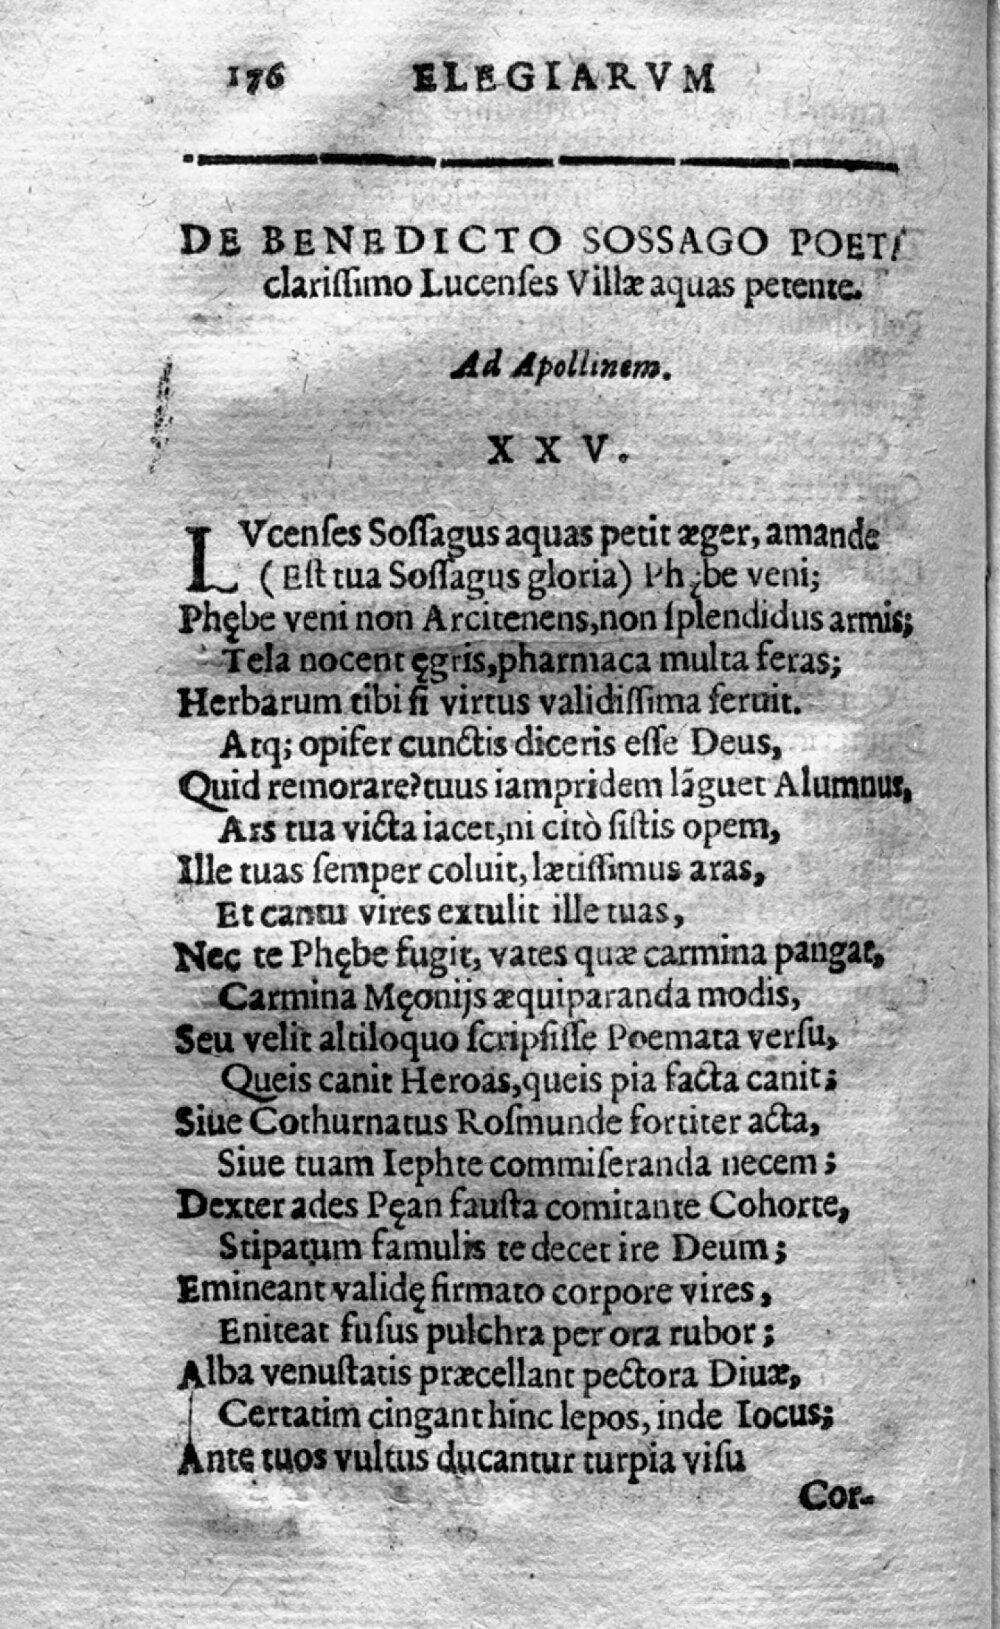 176 ELEGIARVM
DE BENEDICTO SOSSAGO POET
clariſſimo Lucenſes Villæ aquas petente.
Ad Apollinem.
X X V.
LVcenſes Soſſagus aquas petit æger, amande
(Eſt tua Soſſagus gloria) Phębe veni;
Phębe veni non Arcitenens, non ſplendidus armis;
Tela nocent ęgris, pharmaca multa feras;
Herbarum tibi ſi virtus validiſſima feruit.
Atq; opifer cunctis diceris eſſe Deus,
Quid remorare? tuus iampridem lãguet Alumnus,
Ars tua victa iacet, ni citò ſiſtis opem,
Ille tuas ſemper coluit, lætiſſimus aras,
Et cantu vires extulit ille tuas,
Nec te Phębe fugit, vates quæ carmina pangat,
Carmina Męonijs æquiparanda modis,
Seu velit altiloquo ſcripſiſſe Poemata verſu,
Queis canit Heroas, queis pia facta canit;
Siue Cothurnatus Roſmunde fortiter acta,
Siue tuam Iephte commiſeranda necem;
Dexter ades Pęan fauſta comitante Cohorte,
Stipatum famulis te decet ire Deum;
Emineant validę firmato corpore vires,
Eniteat fuſus pulchra per ora rubor;
Alba venuſtatis præcellant pectora Diuæ,
Certatim cingant hinc lepos, inde Iocus;
Ante tuos vultus ducantur turpia viſu
Cor-